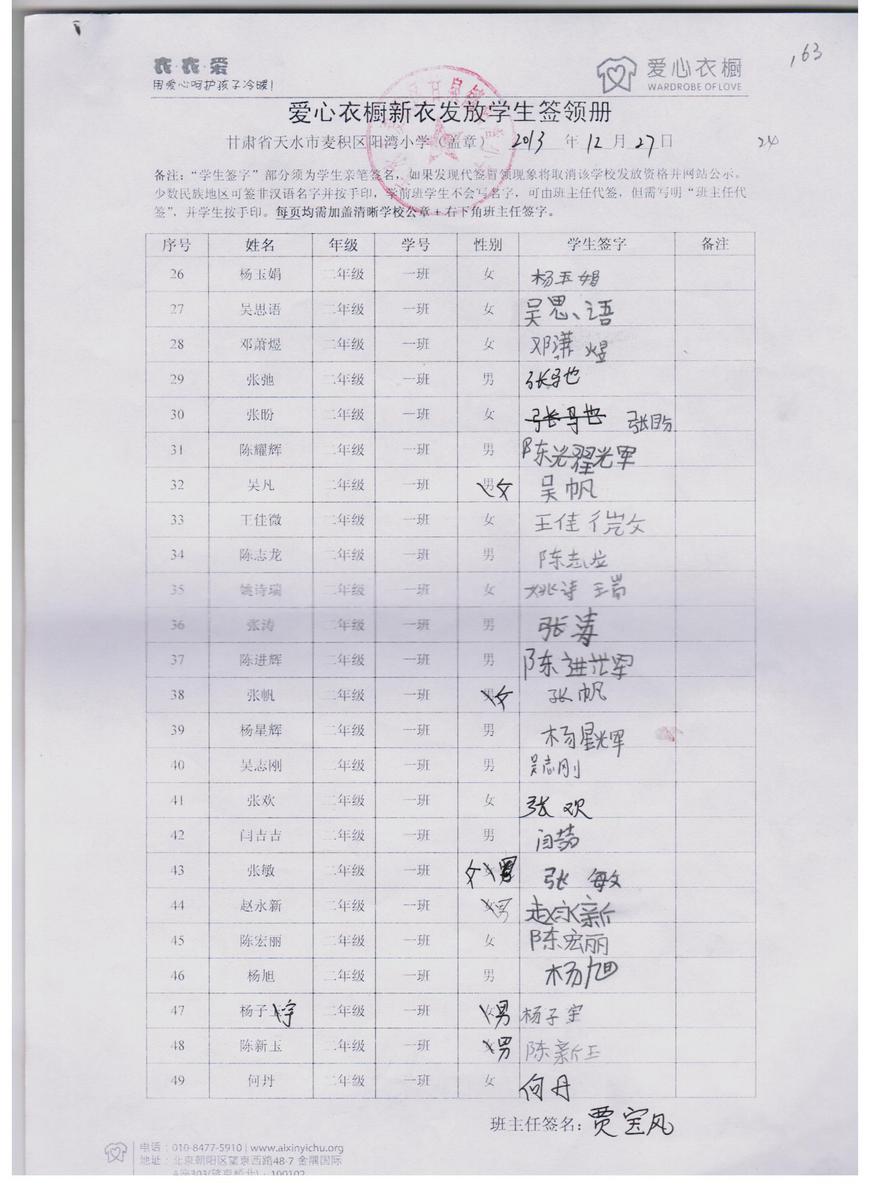 衣·衣·爱
用爱心呵护孩子冷暖!
爱心衣橱
WARDROBE OF LOVE
163
爱心衣橱新衣发放学生签领册
甘肃省天水市麦积区阳湾小学(盖章) 2013 年 12 月 27 日
24
备注:“学生签字”部分须为学生亲笔签名,如果发现代签冒领现象将取消该学校发放资格并网站公示。
少数民族地区可签非汉语名字并按手印,学前班学生不会写名字,可由班主任代签,但需写明“班主任代
签”,并学生按手印。每页均需加盖清晰学校公章+右下角班主任签字。
序号 姓名 年级 学号 性别 学生签字 备注
26 杨玉娟 二年级 一班 女 杨玉娟
27 吴思语 二年级 一班 女 吴思语
28 邓萧煜 二年级 一班 女 邓潇煜
29 张弛 二年级 一班 男 张弛
30 张盼 二年级 一班 女 张弛 张盼
31 陈耀辉 二年级 一班 男 陈耀辉
32 吴凡 二年级 一班 男 女 吴帆
33 王佳微 二年级 一班 女 王佳微
34 陈志龙 二年级 一班 男 陈志龙
35 姚诗瑞 二年级 一班 女 姚诗瑞
36 张涛 二年级 一班 男 张涛
37 陈进辉 二年级 一班 男 陈进辉
38 张帆 二年级 一班 男 女 张帆
39 杨星辉 二年级 一班 男 杨星辉
40 吴志刚 二年级 一班 男 吴志刚
41 张欢 二年级 一班 女 张欢
42 闫吉吉 二年级 一班 男 闫喆
43 张敏 二年级 一班 女 男 张敏
44 赵永新 二年级 一班 女 男 赵永新
45 陈宏丽 二年级 一班 女 陈宏丽
46 杨旭 二年级 一班 男 杨旭
47 杨子 宇 二年级 一班 女 男 杨子宇
48 陈新玉 二年级 一班 女 男 陈新玉
49 何丹 二年级 一班 女 何丹
班主任签名: 贾宝凤
电话:010-8477-5910 | www.aixinyichu.org
地址:北京朝阳区望京西路48-7 金隅国际